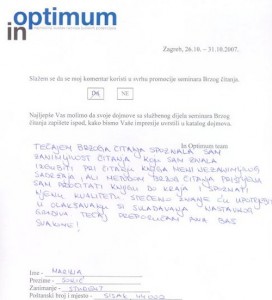 in optimum
Zagreb, 26.10. - 31.10.2007.
Slažem se da se moj komentar koristi u svrhu promocije seminara Brzog čitanja.
DA NE
Najljepše Vas molimo da svoje dojmove sa službenog dijela seminara Brzog
čitanja zapišete ispod, kako bismo Vaše impresije uvrstili u katalog dojmova.
In Optimum team
TEČAJEM BRZOGA ČITANJA SPOZNALA SAM
ZANIMLJIVOST ČITANJA KOJU SAM ZNALA
IZGUBITI PRI ČITANJU KNJIGA MENI NEZANIMLJIVOG
SADRŽAJA, ALI METODOM BRZOG ČITANJA
SAM PROČITATI KNJIGU DO KRAJA I SPOZNATI
NJENU KVALITETU. STEČENO ZNANJE ĆU UPOTRIJEBITI
U OLAKŠAVANJU SAVLADAVANJA NASTAVNOG
GRADIVA. TEČAJ PREPORUČAM BAŠ
SVAKOME!
Ime: MARINA
Prezime: SORIĆ
Zanimanje: STUDENT
Poštanski broj i mjesto: SISAK 44000